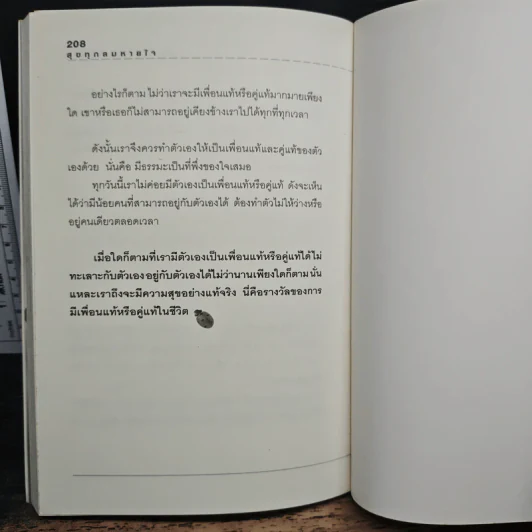 208
สุขทุกลมหายใจ
อย่างไรก็ตาม ไม่ว่าเราจะมีเพื่อนแท้หรือคู่แท้มากมายเพียง
ใด เขาหรือเธอก็ไม่สามารถอยู่เคียงข้างเราไปได้ทุกที่ทุกเวลา
ดังนั้นเราจึงควรทำตัวเองให้เป็นเพื่อนแท้และคู่แท้ของตัว
เองด้วย นั่นคือ มีธรรมะเป็นที่พึ่งของใจเสมอ
ทุกวันนี้เราไม่ค่อยมีตัวเองเป็นเพื่อนแท้หรือคู่แท้ ดังจะเห็น
ได้ว่ามีน้อยคนที่สามารถอยู่กับตัวเองได้ ต้องทำตัวไม่ให้ว่างหรือ
อยู่คนเดียวตลอดเวลา
เมื่อใดก็ตามที่เรามีตัวเองเป็นเพื่อนแท้หรือคู่แท้ได้ไม่
ทะเลาะกับตัวเอง อยู่กับตัวเองได้ไม่ว่านานเพียงใดก็ตาม นั่น
แหละเราถึงจะมีความสุขอย่างแท้จริง นี่คือรางวัลของการ
มีเพื่อนแท้หรือคู่แท้ในชีวิต